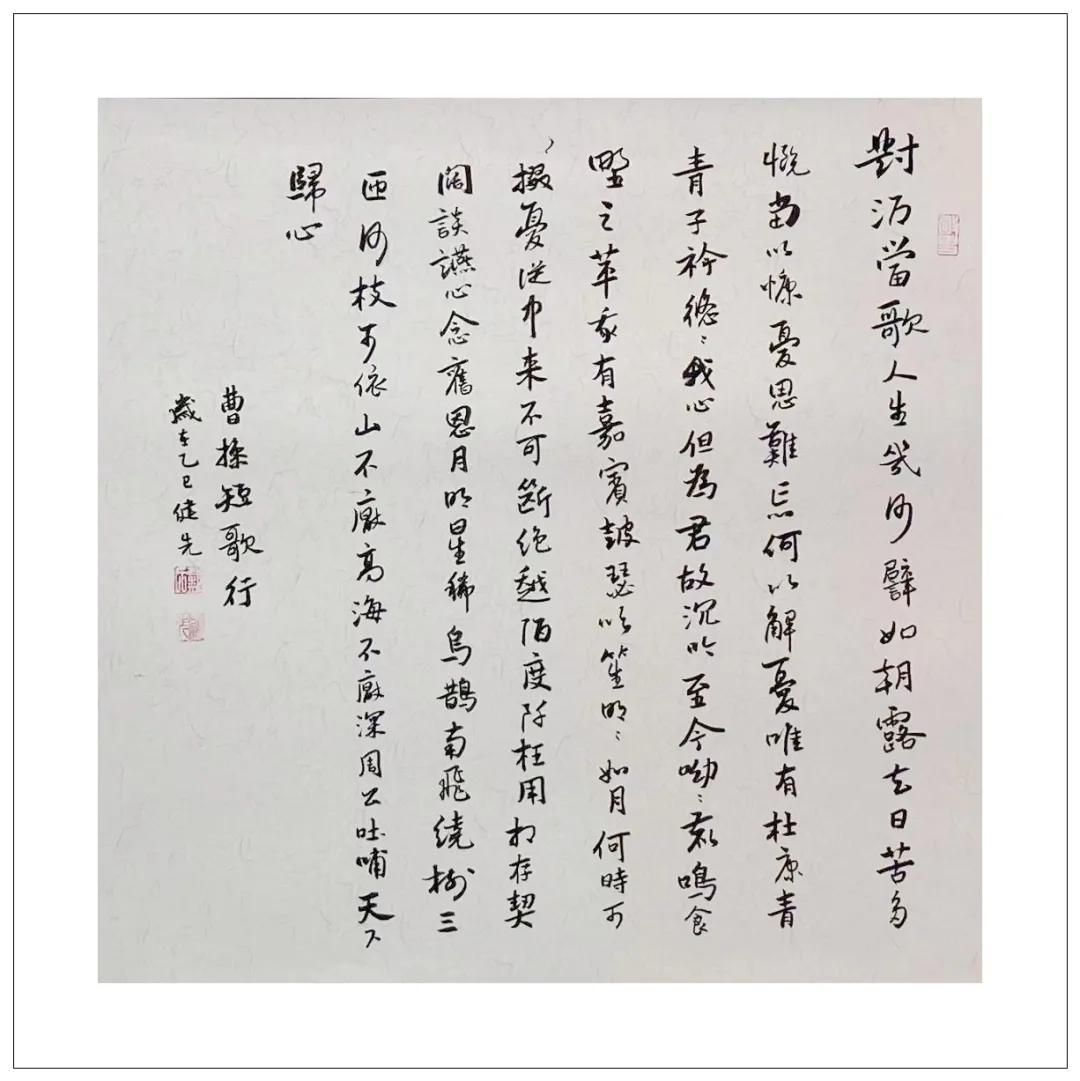 對酒當歌人生幾何譬如朝露去日苦多
慨當以慷憂思難忘何以解憂唯有杜康青
青子衿悠〻我心但為君故沉吟至今呦〻鹿鳴食
野之苹我有嘉賓鼓瑟吹笙明〻如月何時可
掇憂從中来不可斷絕越陌度阡枉用相存契
闊談讌心念舊恩月明星稀烏鵲南飛繞樹三
匝何枝可依山不厭高海不厭深周公吐哺天下
歸心
曹操短歌行
歲在乙巳健先